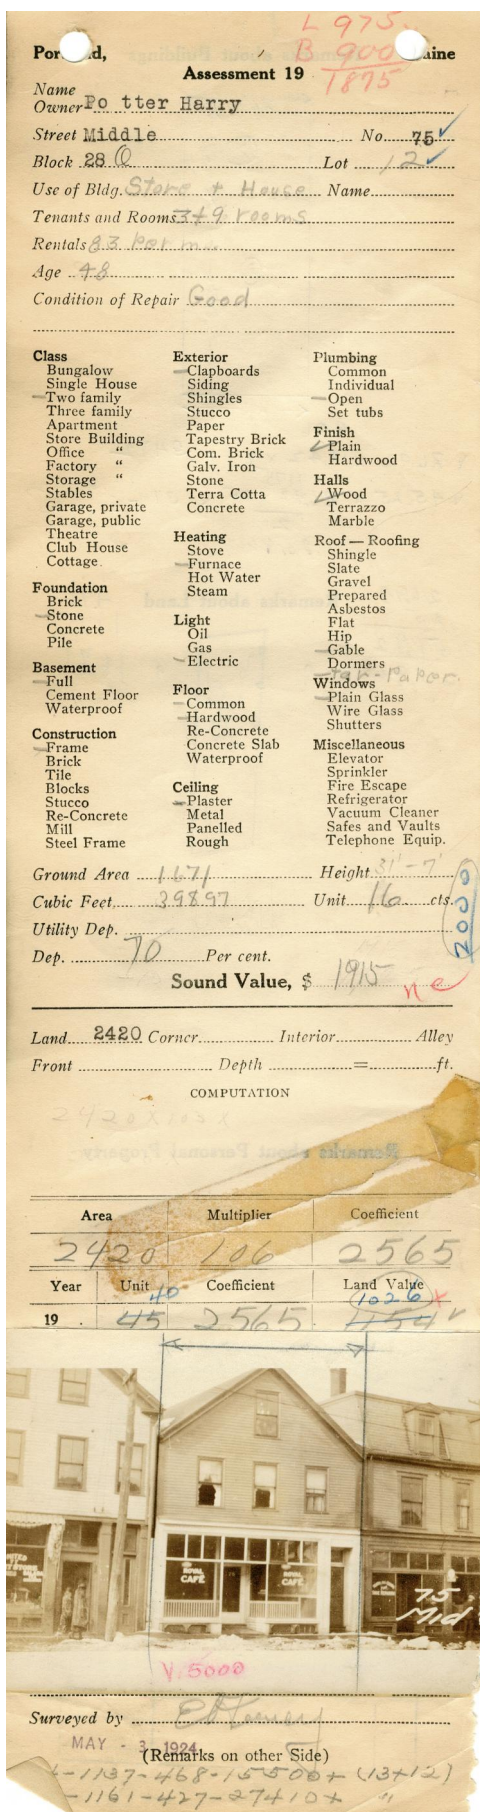 L 975
B 900
1875
Portland, Maine
Assessment 19
Name
Owner Po tter Harry
Street Middle No. 75
Block 28 O Lot 12
Use of Bldg. Store + House Name
Tenants and Rooms 3+9 rooms
Rentals 83 per m
Age 48
Condition of Repair Good
Class
Bungalow
Single House
Two family
Three family
Apartment
Store Building
Office "
Factory "
Storage "
Stables
Garage, private
Garage, public
Theatre
Club House
Cottage.
Foundation
Brick
Stone
Concrete
Pile
Basement
Full
Cement Floor
Waterproof
Construction
Frame
Brick
Tile
Blocks
Stucco
Re-Concrete
Mill
Steel Frame
Exterior
Clapboards
Siding
Shingles
Stucco
Paper
Tapestry Brick
Com. Brick
Galv. Iron
Stone
Terra Cotta
Concrete
Heating
Stove
Furnace
Hot Water
Steam
Light
Oil
Gas
Electric
Floor
Common
Hardwood
Re-Concrete
Concrete Slab
Waterproof
Ceiling
Plaster
Metal
Panelled
Rough
Plumbing
Common
Individual
Open
Set tubs
Finish
Plain
Hardwood
Halls
Wood
Terrazzo
Marble
Roof — Roofing
Shingle
Slate
Gravel
Prepared
Asbestos
Flat
Hip
Gable
Dormers
Tar-Paper.
Windows
Plain Glass
Wire Glass
Shutters
Miscellaneous
Elevator
Sprinkler
Fire Escape
Refrigerator
Vacuum Cleaner
Safes and Vaults
Telephone Equip.
Ground Area 1671 Height 31'-7'
Cubic Feet 39897 Unit 16 cts.
2000
Utility Dep.
Dep. 70 Per cent.
Sound Value, $ 1915
nc
Land 2420 Corner Interior Alley
Front Depth = ft.
COMPUTATION
2420 x 103 x
Remarks about Personal Property
Area Multiplier Coefficient
2420 106 2565
Year Unit Coefficient Land Value
40 1026 x
19 . 45 2565 454
ROYAL CAFE
ROYAL CAFE
75
Mid
V. 5000
Surveyed by
MAY - 3 1924
(Remarks on other Side)
-1137-468-15500+ (13+12)
-1161-427-27410+ "